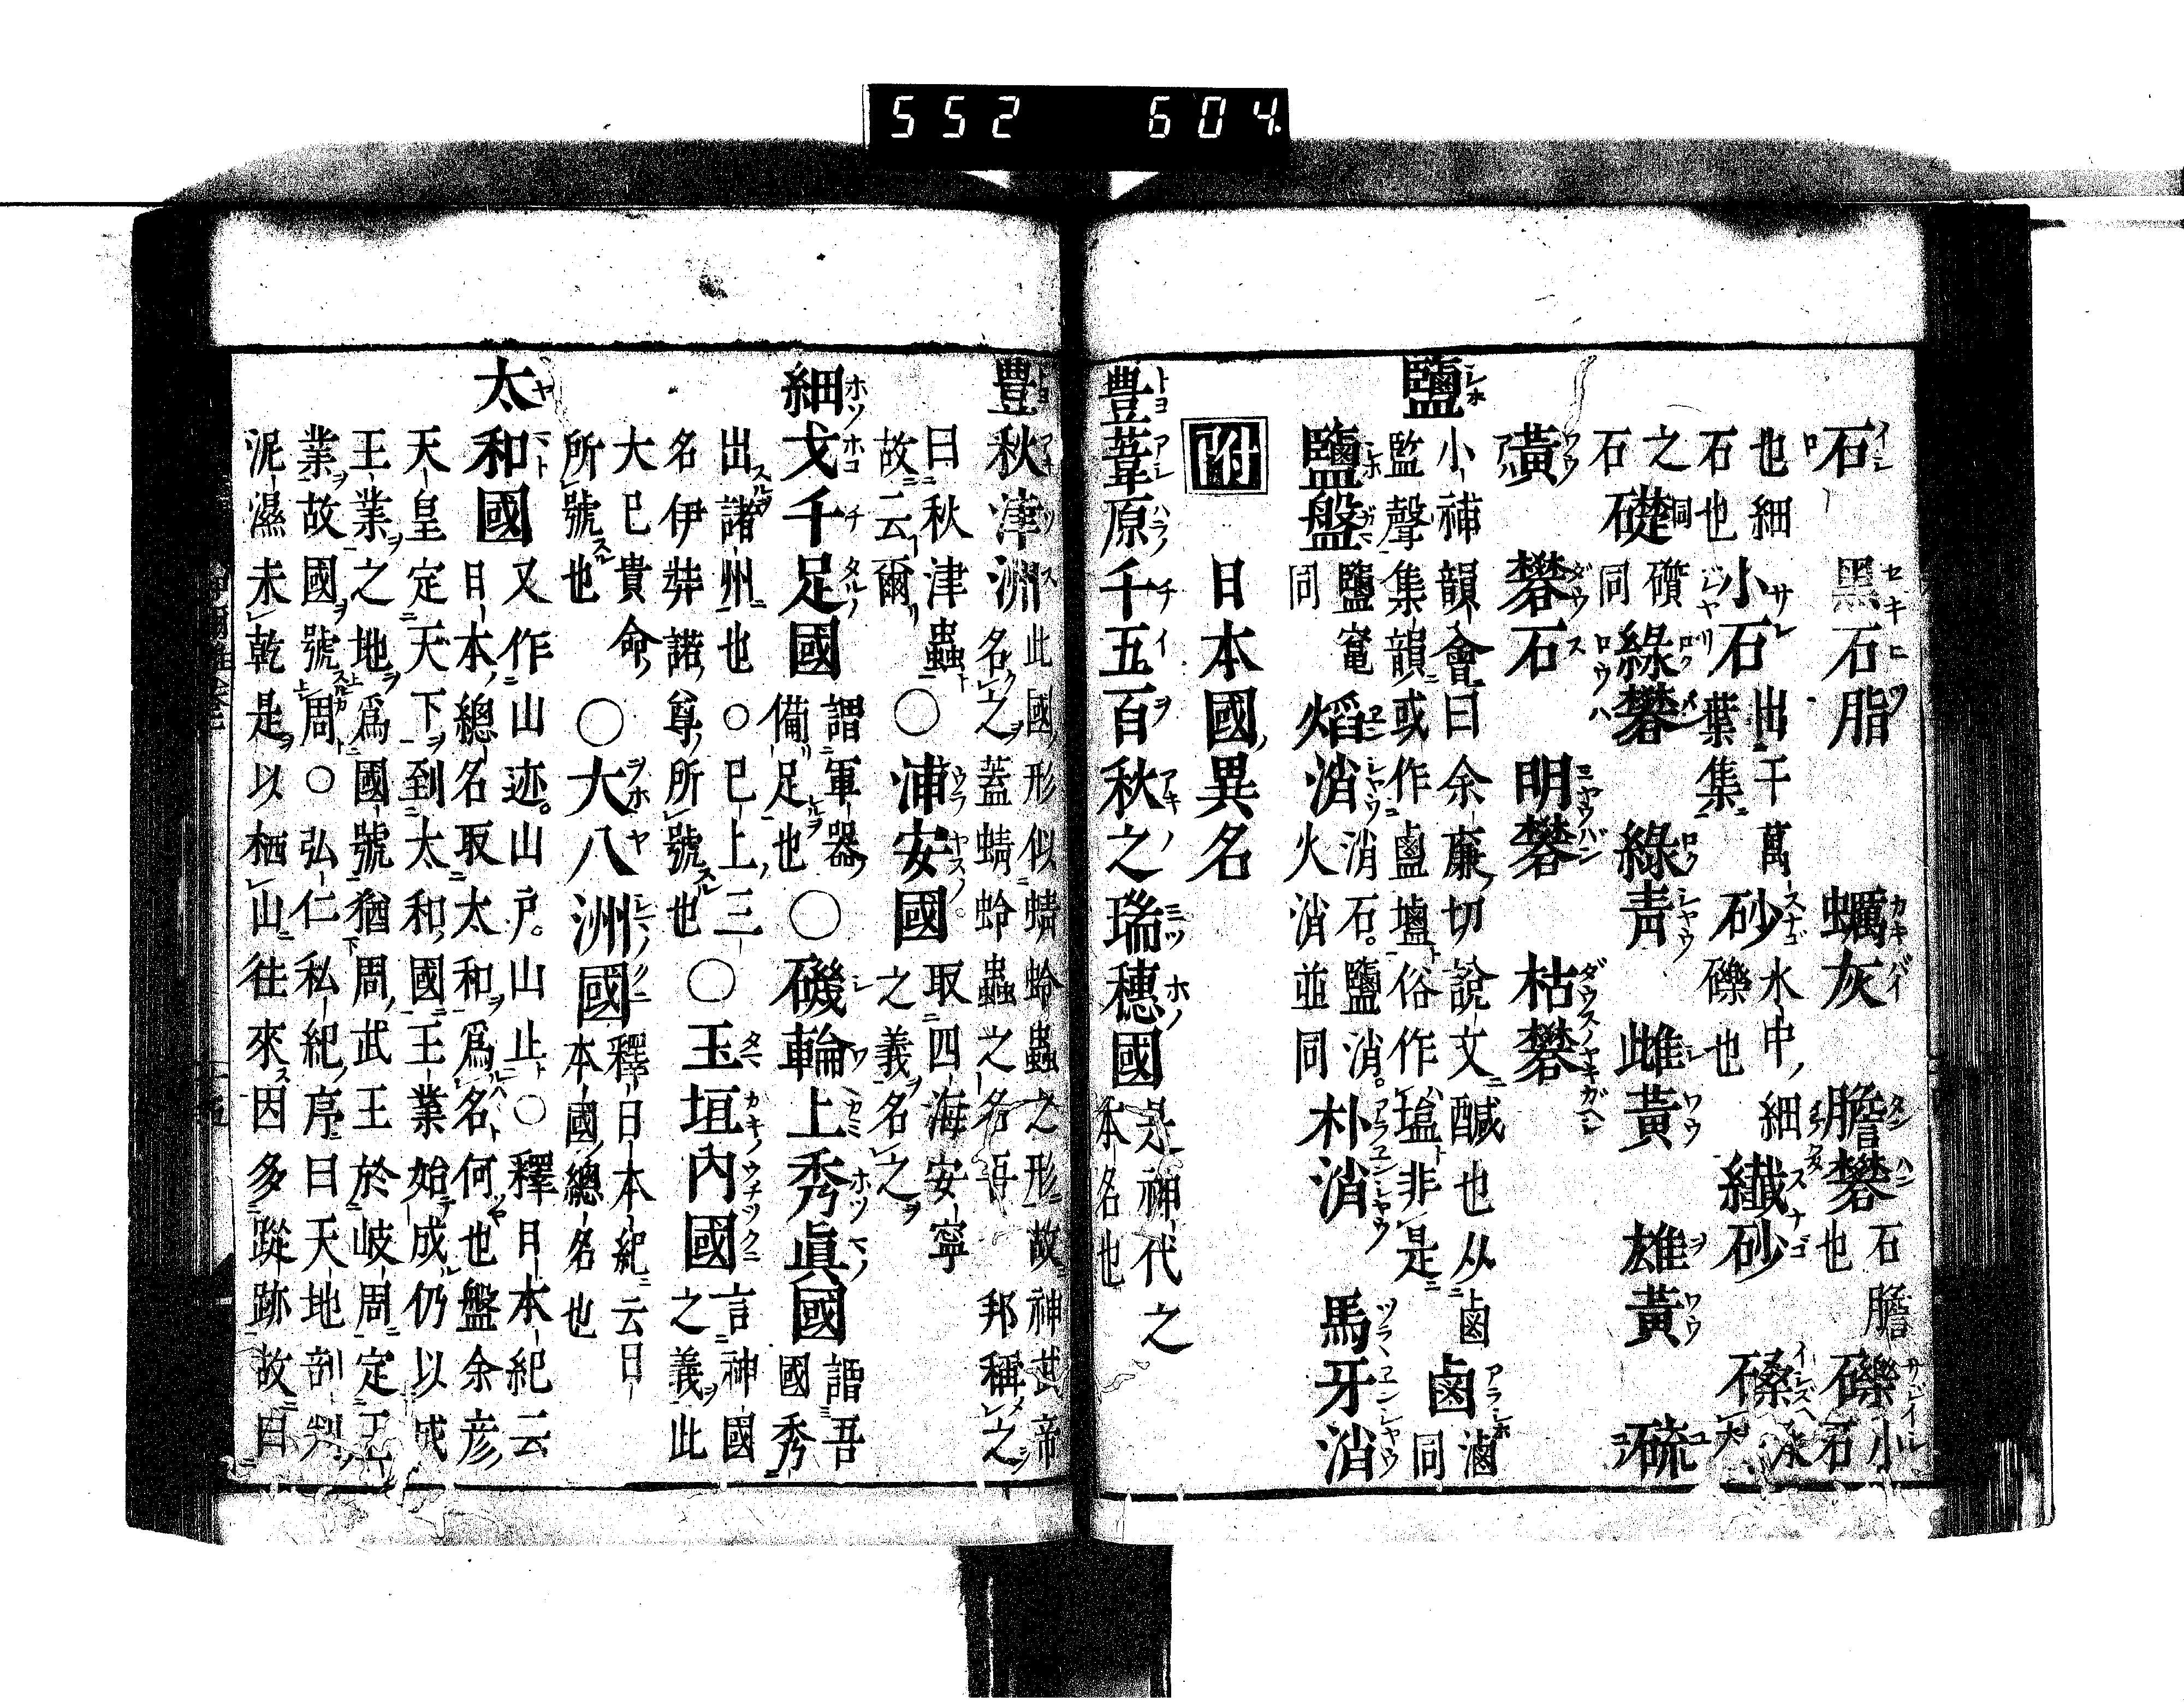 552 604.
石 黑石脂 蠣灰 膽礬 石膽也 礫 小石
也細石也 小石 出千萬葉集 砂 水中細礫也 纖砂 磉
之石 礎 礩同 綠礬 綠青 雌黃 雄黃 硫
黃 礬石 明礬 枯礬
鹽 小補韻會曰余廉切說文醎也从鹵監聲集韻或作鹵塩俗作塩非是 鹵 滷同
鹽盤 鹽竃同 焰消 消石鹽消火消並同 朴消 馬牙消
附 日本國異名
豊葦原千五百秋之瑞穗國 是神代之本名也
豊秋津洲 此國形似蜻蛉蟲之形故神武帝名之蓋蜻蛉蟲之名吾邦稱之
曰秋津蟲故云爾 ○浦安國 取四海安寧之義名之
細戈千足國 謂軍器備足也 ○磯輪上秀眞國 謂吾國秀
出諸州也○已上三名伊弉諾尊所號也 ○玉垣內國 言神國之義此
大已貴命所號也 ○大八洲國 釋日本紀云日本國總名也
太和國 又作山迹山戶山止○釋日本紀云日本總名取太和爲名何也盤余彦
天皇定天下到太和國王業始成仍以成
王業之地爲國號猶周武王於岐周定王
業故國號周○弘仁私紀序曰天地剖判
泥濕未乾是以栖山往來因多蹤跡故曰